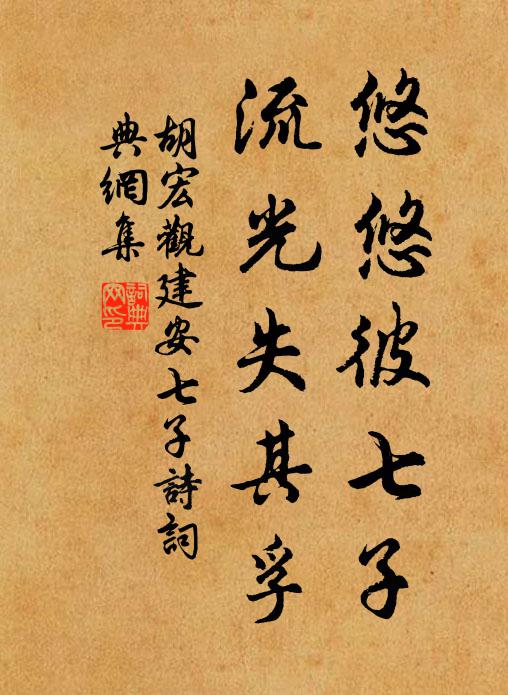 悠悠彼七子
流光失其孚
胡宏觀建安七子詩詞
典網集
詞典網印